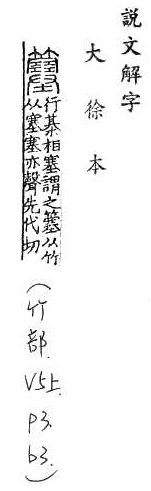 説文解字
大徐本
簺
行棊相塞謂之簺从竹
从塞塞亦聲先代切
(竹部. V5上. P3. b3.)